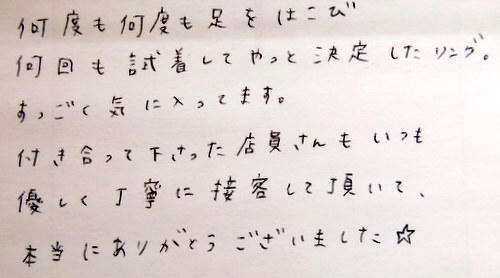 何度も何度も足をはこび
何回も試着してやっと決定したリング。
すっごく気に入ってます。
付き合って下さった店員さんもいつも
優しく丁寧に接客して頂いて、
本当にありがとうございました☆